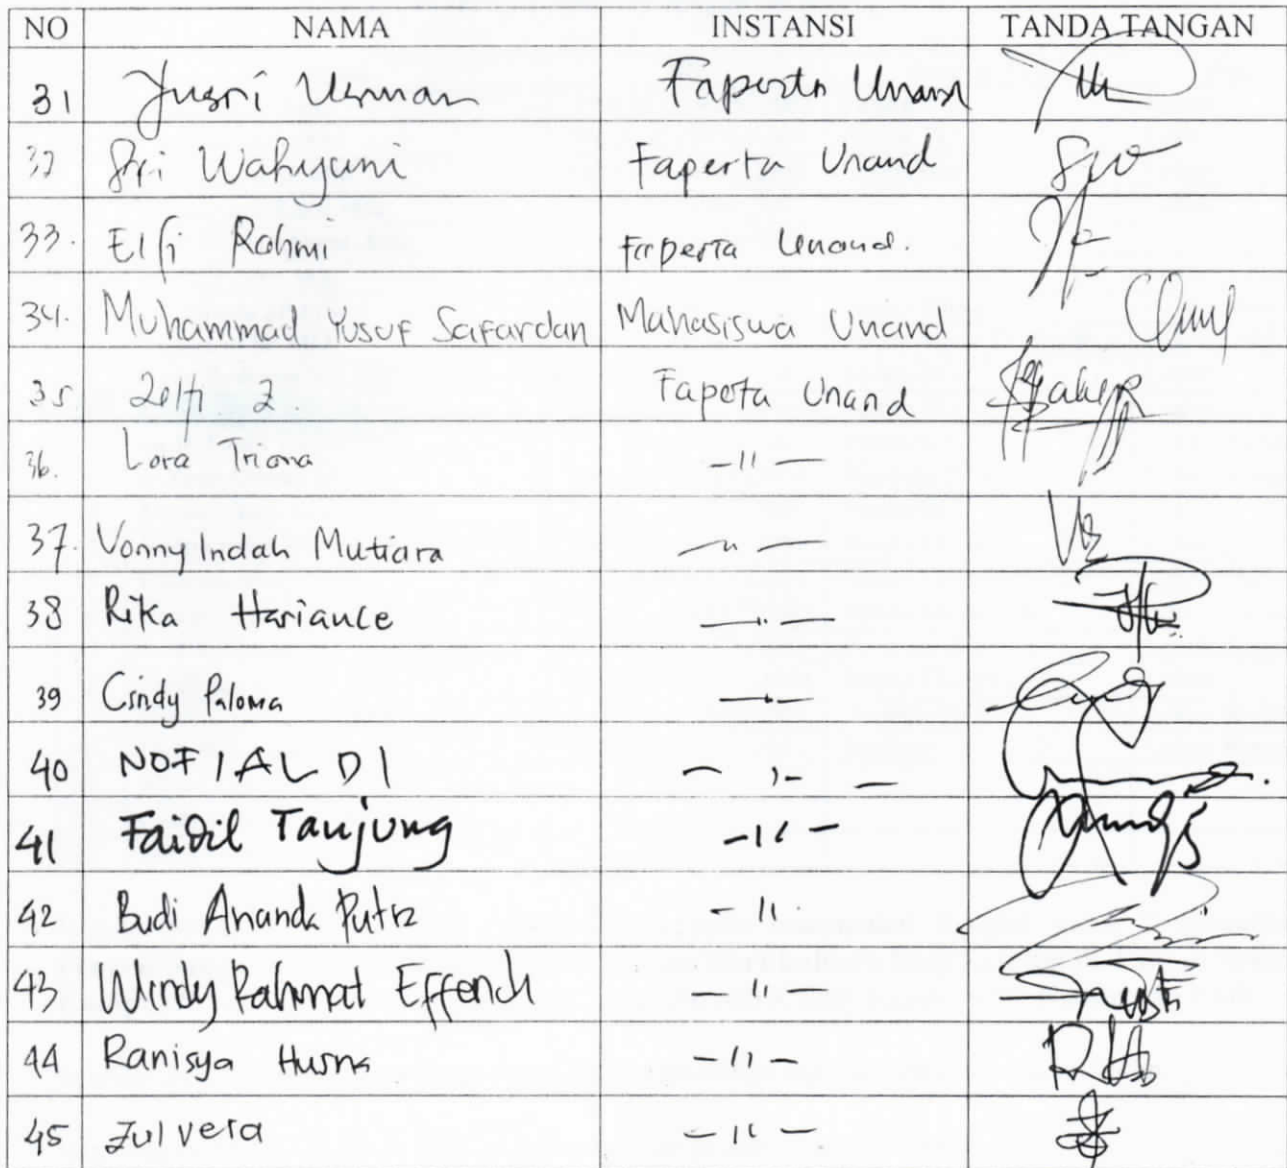 NO NAMA INSTANSI TANDA TANGAN
31 Yusri Usman Faperta Unand
32 Sri Wahyuni Faperta Unand
33. Elfi Rahmi Faperta Unand.
34. Muhammad Yusuf Safardan Mahasiswa Unand
35. Z. Fapeta Unand
36. Lora Triana -11-
37. Vonny Indah Mutiara -11-
38 Rika Hariance -11-
39 Cindy Paloma -11-
40 NOFIALDI -11-
41 Faidil Tanjung -11-
42 Budi Ananda Putra -11
43 Windy Rahmat Effendi -11-
44 Ranisya Husna -11-
45 Zulvera -11-